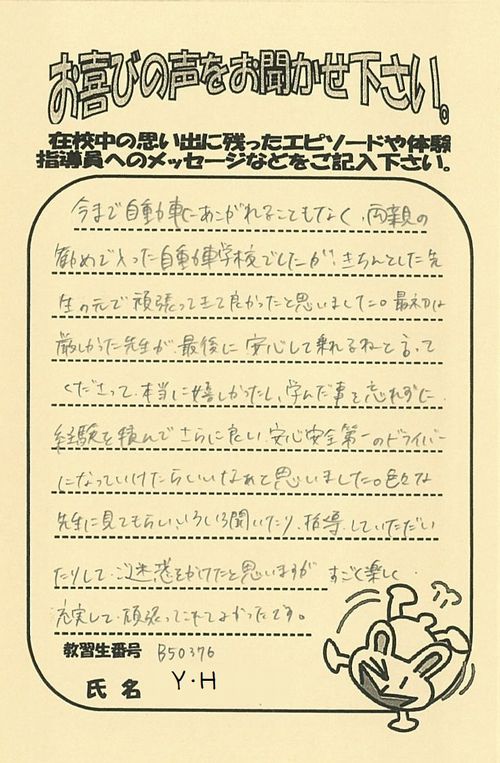 お喜びの声をお聞かせ下さい。
在校中の思い出に残ったエピソードや体験
指導員へのメッセージなどをご記入下さい。
今まで自動車にあこがれることもなく、両親の
勧めで入った自動車学校でしたが、きちんとした先
生の元で頑張ってきて良かったと思いました。最初は
厳しかった先生が、最後に安心して乗れるねと言って
くださって、本当に嬉しかったし、学んだ事を忘れずに、
経験を積んでさらに良い、安心安全第一のドライバー
になっていけたらいいなぁと思いました。色々な
先生に見てもらい、いろいろ聞いたり、指導していただい
たりして、ご迷惑をかけたと思いますが すごく楽しく
充実して頑張ってこれてよかったです。
教習生番号 B50376
氏名 Y・H